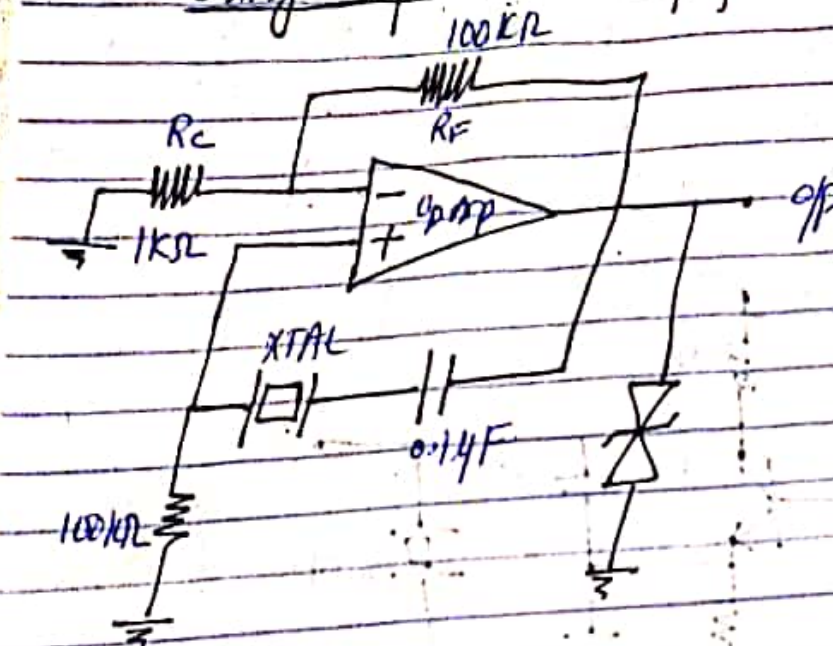 100KΩ
RF
Rc
1KΩ
-
OpAmp
+
o/p
XTAL
0.1μF
100KΩ